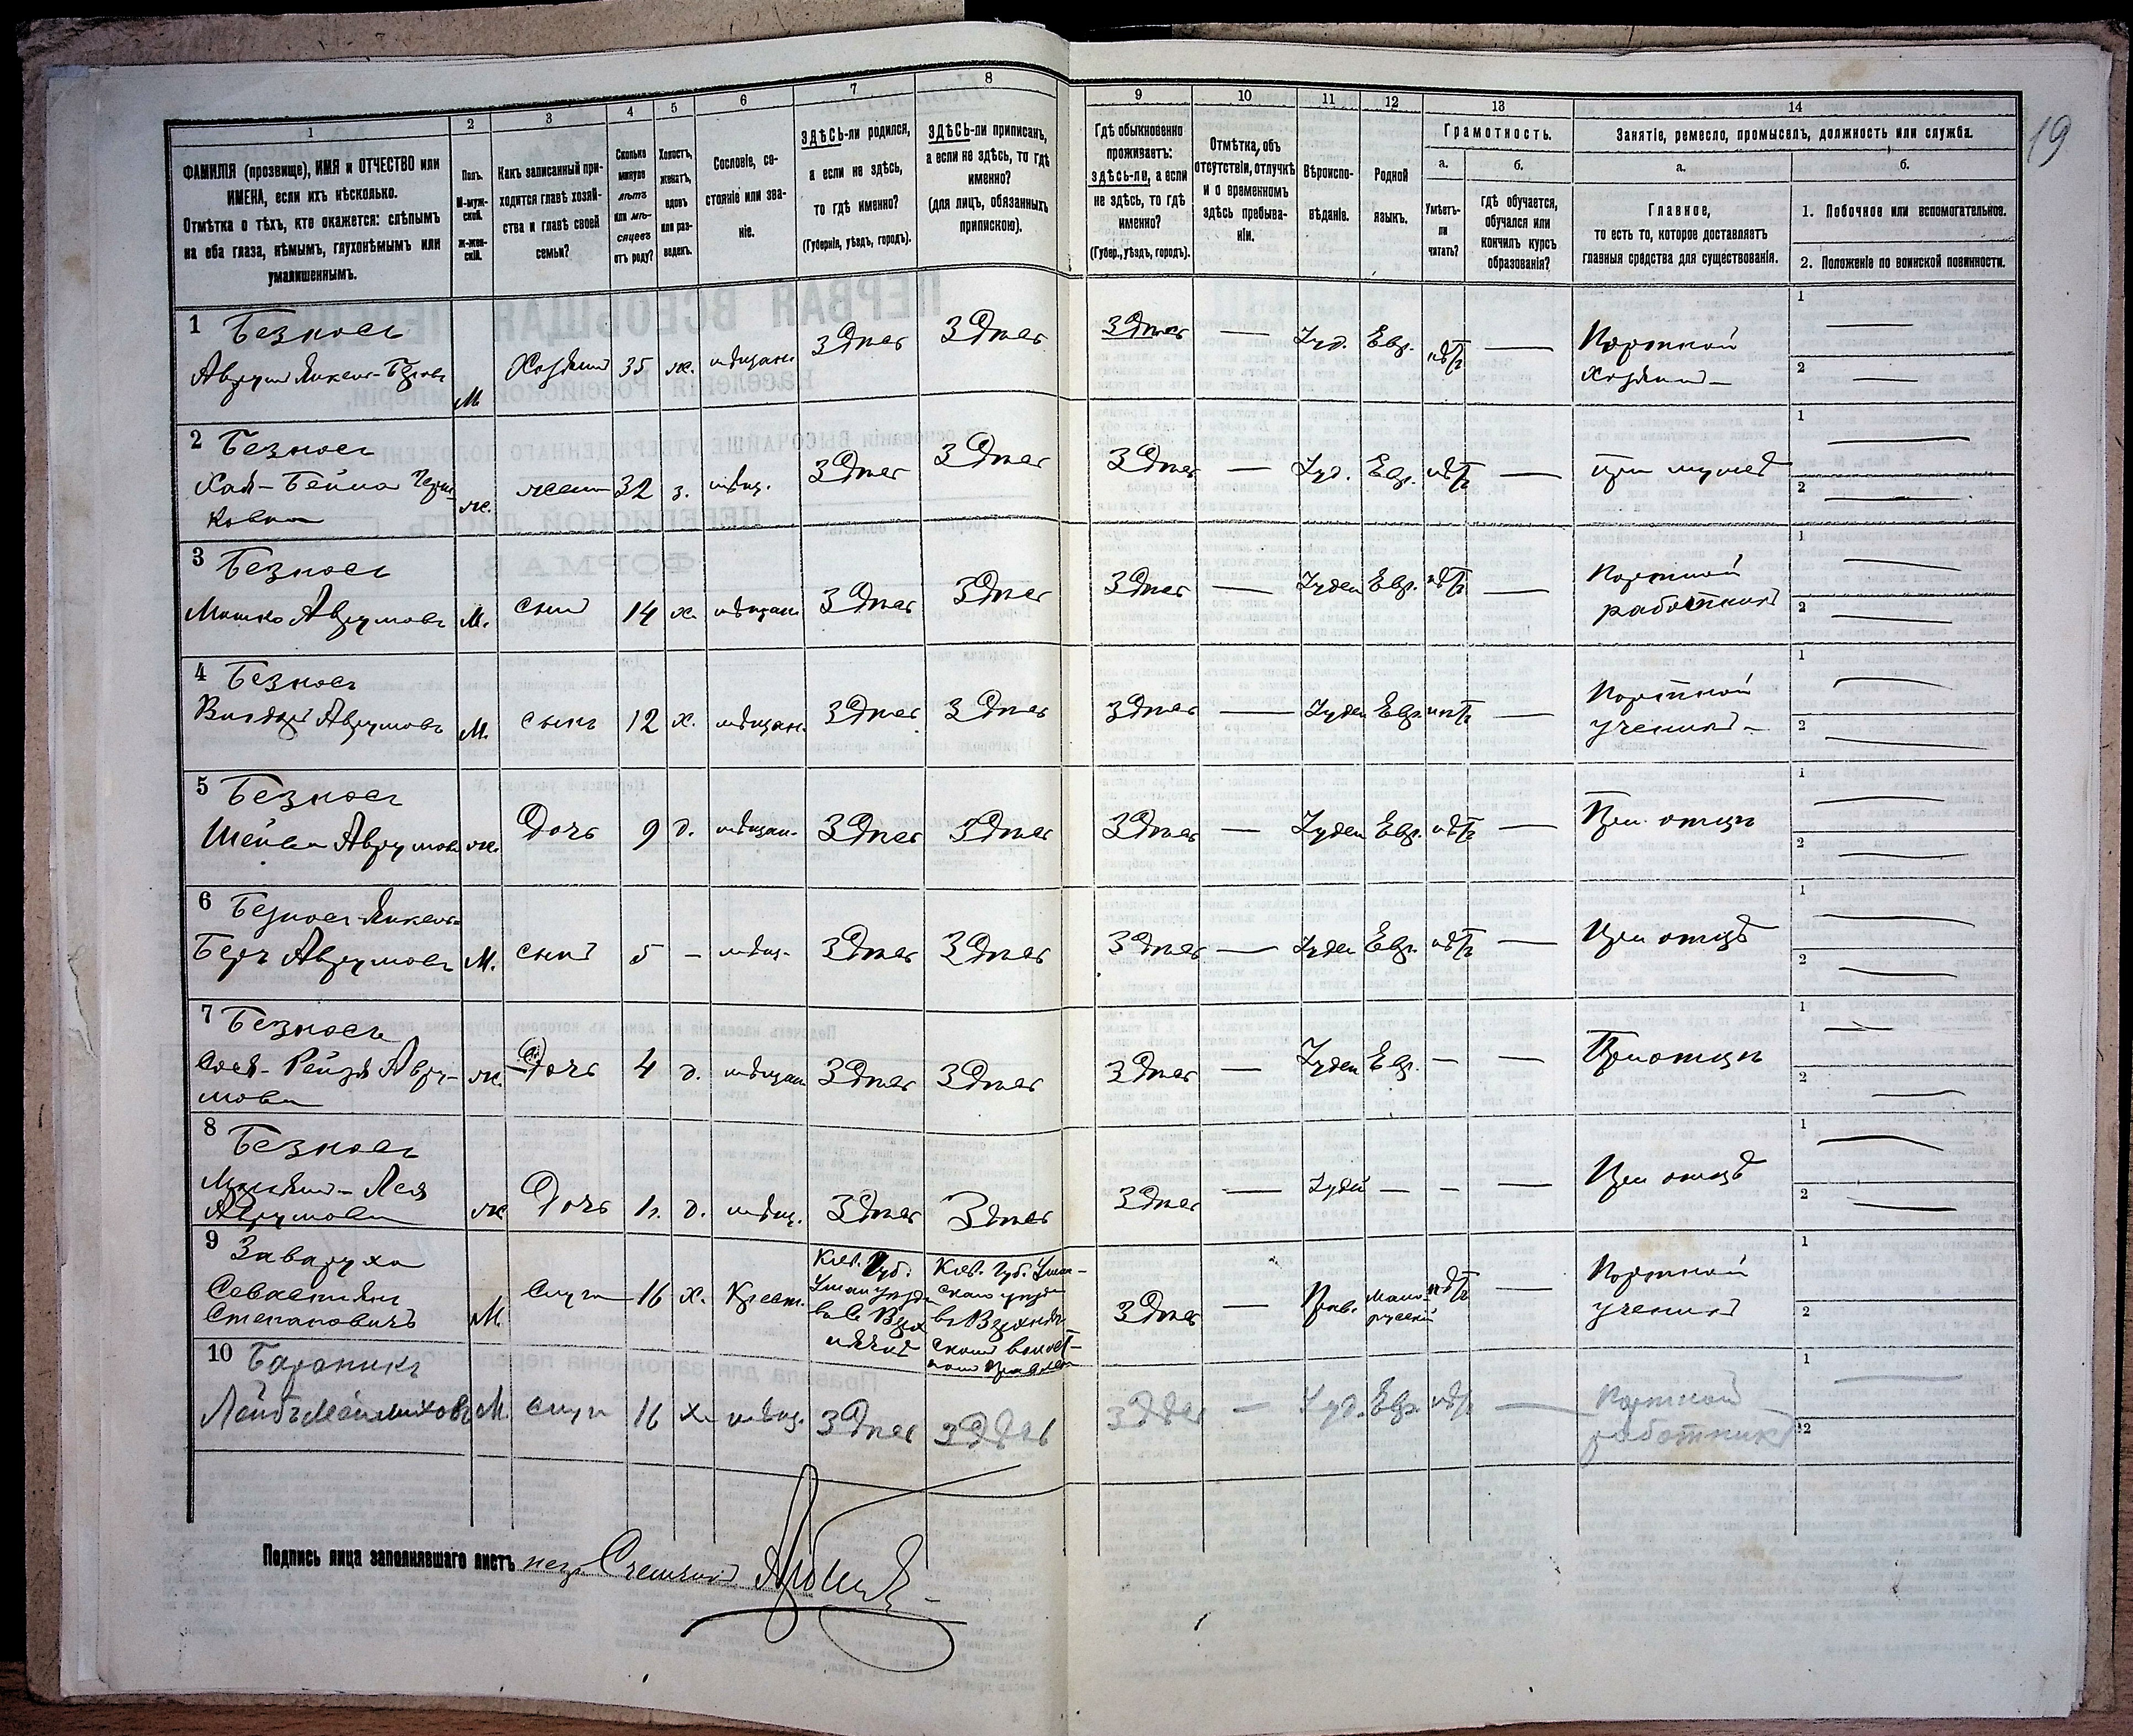 19
1
2
3
4
5
6
7
8
9
10
11
12
13
14
ФАМИЛІЯ (прозвище), ИМЯ и ОТЧЕСТВО или
ИМЕНА, если ихъ нѣсколько.
Отмѣтка о тѣхъ, кто окажется: слѣпымъ
на оба глаза, нѣмымъ, глухонѣмымъ или
умалишеннымъ.
Полъ.
М-муж-
ской.
Ж-жен-
скій.
Какъ записанный при-
ходится главѣ хозяй-
ства и главѣ своей
семьи?
Сколько
минуло
лѣтъ
или мѣ-
сяцевъ
отъ роду?
Холостъ,
женатъ,
вдовъ
или раз-
веденъ.
Сословіе, со-
стояніе или зва-
ніе.
ЗДѢСЬ-ли родился,
а если не здѣсь,
то гдѣ именно?
(Губернія, уѣздъ, городъ).
ЗДѢСЬ-ли приписанъ,
а если не здѣсь, то гдѣ
именно?
(для лицъ, обязанныхъ
припискою).
Гдѣ обыкновенно
проживаетъ:
здѣсь-ли, а если
не здѣсь, то гдѣ
именно?
(Губер., уѣздъ, городъ).
Отмѣтка объ
отсутствіи, отлучкѣ
и о временномъ
здѣсь пребыва-
ніи.
Вѣроиспо-
вѣданіе.
Родной
языкъ.
Грамотность.
а.
б.
Умѣетъ-
ли
читать?
гдѣ обучается,
обучался или
кончилъ курсъ
образованія?
Занятіе, ремесло, промыселъ, должность или служба.
а.
б.
Главное,
то есть то, которое доставляетъ
главныя средства для существованія.
1. Побочное или вспомогательное.
2. Положеніе по воинской повинности.
1 Безносъ
Аврумъ Янкель-Беровъ
М
Хозяинъ 35 ж. мѣщан. Здѣсь Здѣсь Здѣсь — Іуд. Евр. нѣтъ — Портной
хозяинъ —
1 —
2 —
2 Безносъ
Хая-Бейла
ж. жена 32 з. мѣщ. Здѣсь Здѣсь Здѣсь — Іуд. Евр. нѣтъ — при мужѣ
1 —
2 —
3 Безносъ
Мошко Аврумовъ М. сынъ 14 х. мѣщан. Здѣсь Здѣсь Здѣсь — Іудей Евр. нѣтъ — Портной
работникъ
1 —
2 —
4 Безносъ
Аврумовъ М. сынъ 12 х. мѣщан. Здѣсь Здѣсь Здѣсь — Іудей Евр. нѣтъ — Портной
ученикъ —
1 —
2 —
5 Безносъ
Шейва Аврумова ж. Дочь 9 д. мѣщан. Здѣсь Здѣсь Здѣсь — Іудей Евр. нѣтъ — При отцѣ
1 —
2 —
6 Безносъ Янкель-
Беръ Аврумовъ М. сынъ 5 — мѣщ. Здѣсь Здѣсь Здѣсь — Іудей Евр. нѣтъ — При отцѣ
1 —
2 —
7 Безносъ
Рейзя Авру-
мова
ж. Дочь 4 д. мѣщан Здѣсь Здѣсь Здѣсь — Іудей Евр. — — При отцѣ
1 —
2 —
8 Безносъ
Лея
Аврумова
ж Дочь 1 г. д. мѣщ. Здѣсь Здѣсь Здѣсь — Іудей — — — При отцѣ
1 —
2 —
9 Заваруха
Севастьянъ
Степановичъ
М. слуга 16 х. Крест. Кіев. Губ. Кіев. Губ. Уман-
Здѣсь — Прав. Мало-
русскій нѣтъ — Портной
ученикъ
1
2
10 Бараникъ
Лейбъ М. слуга 16 х. мѣщ. Здѣсь Здѣсь Здѣсь — Іуд. Евр. нѣтъ — Портной
работникъ
1 —
2
Подпись лица заполнявшаго листъ